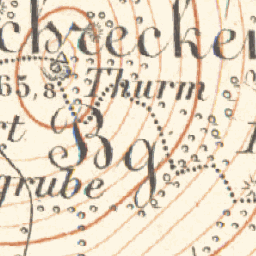 chrecken
65,8 Thurm
rt Bg
grube